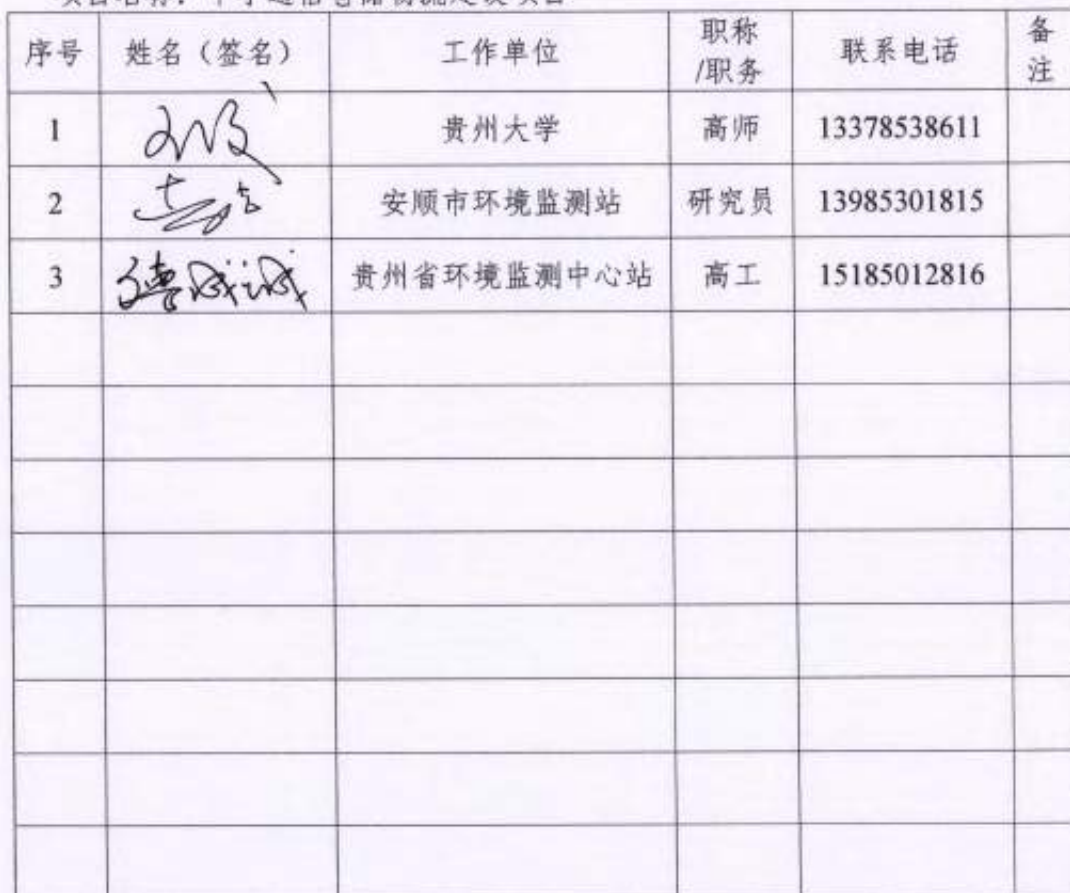 序号 姓名（签名） 工作单位 职称/职务 联系电话 备注
1 贵州大学 高师 13378538611
2 安顺市环境监测站 研究员 13985301815
3 贵州省环境监测中心站 高工 15185012816